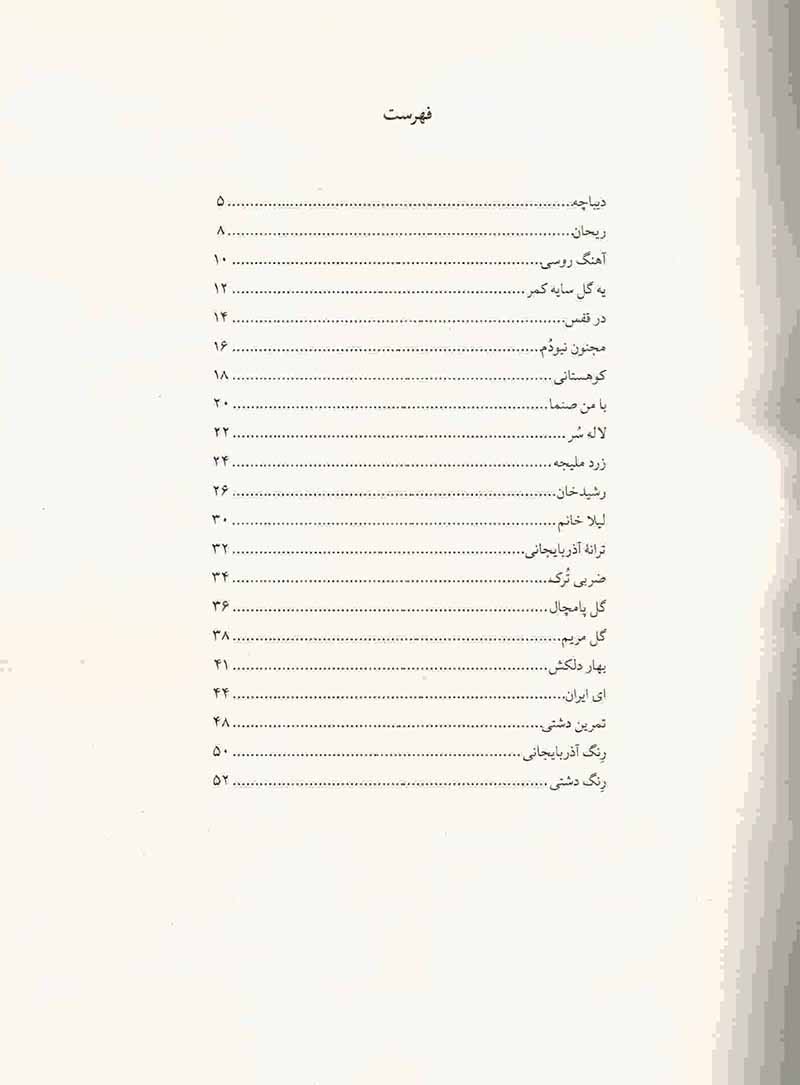 فهرست
دیباچه ........ ۵
ریحان ........ ۸
آهنگ روسی ........ ۱۰
یه گل سایه کمر ........ ۱۲
در قفس ........ ۱۴
مجنون نبودُم ........ ۱۶
کوهستانی ........ ۱۸
با من صنما ........ ۲۰
لاله سُر ........ ۲۲
زرد ملیجه ........ ۲۴
رشیدخان ........ ۲۶
لیلا خانم ........ ۳۰
ترانهٔ آذربایجانی ........ ۳۲
ضربی تُرک ........ ۳۴
گل پامچال ........ ۳۶
گل مریم ........ ۳۸
بهار دلکش ........ ۴۱
ای ایران ........ ۴۴
تمرین دشتی ........ ۴۸
رِنگ آذربایجانی ........ ۵۰
رِنگ دشتی ........ ۵۲